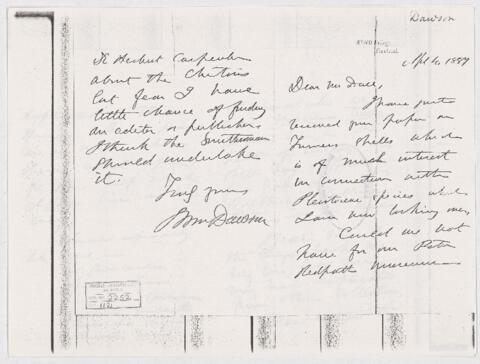 Dawson
McGill College
Montreal
Apl 4, 1887
Dear Mr Dall,
I have just
received your paper on
Turners shells which
is of much interest
in connection with
Pleistocene species which
I am now looking over
Could we not
have for our Peter
Redpath Museum
to Herbert Carpenter
about the Chitons
but fear I have
little chance of finding
an editor or publisher
I think the Smithsonian
should undertake
it.
Truly yours
J Wm Dawson
5252